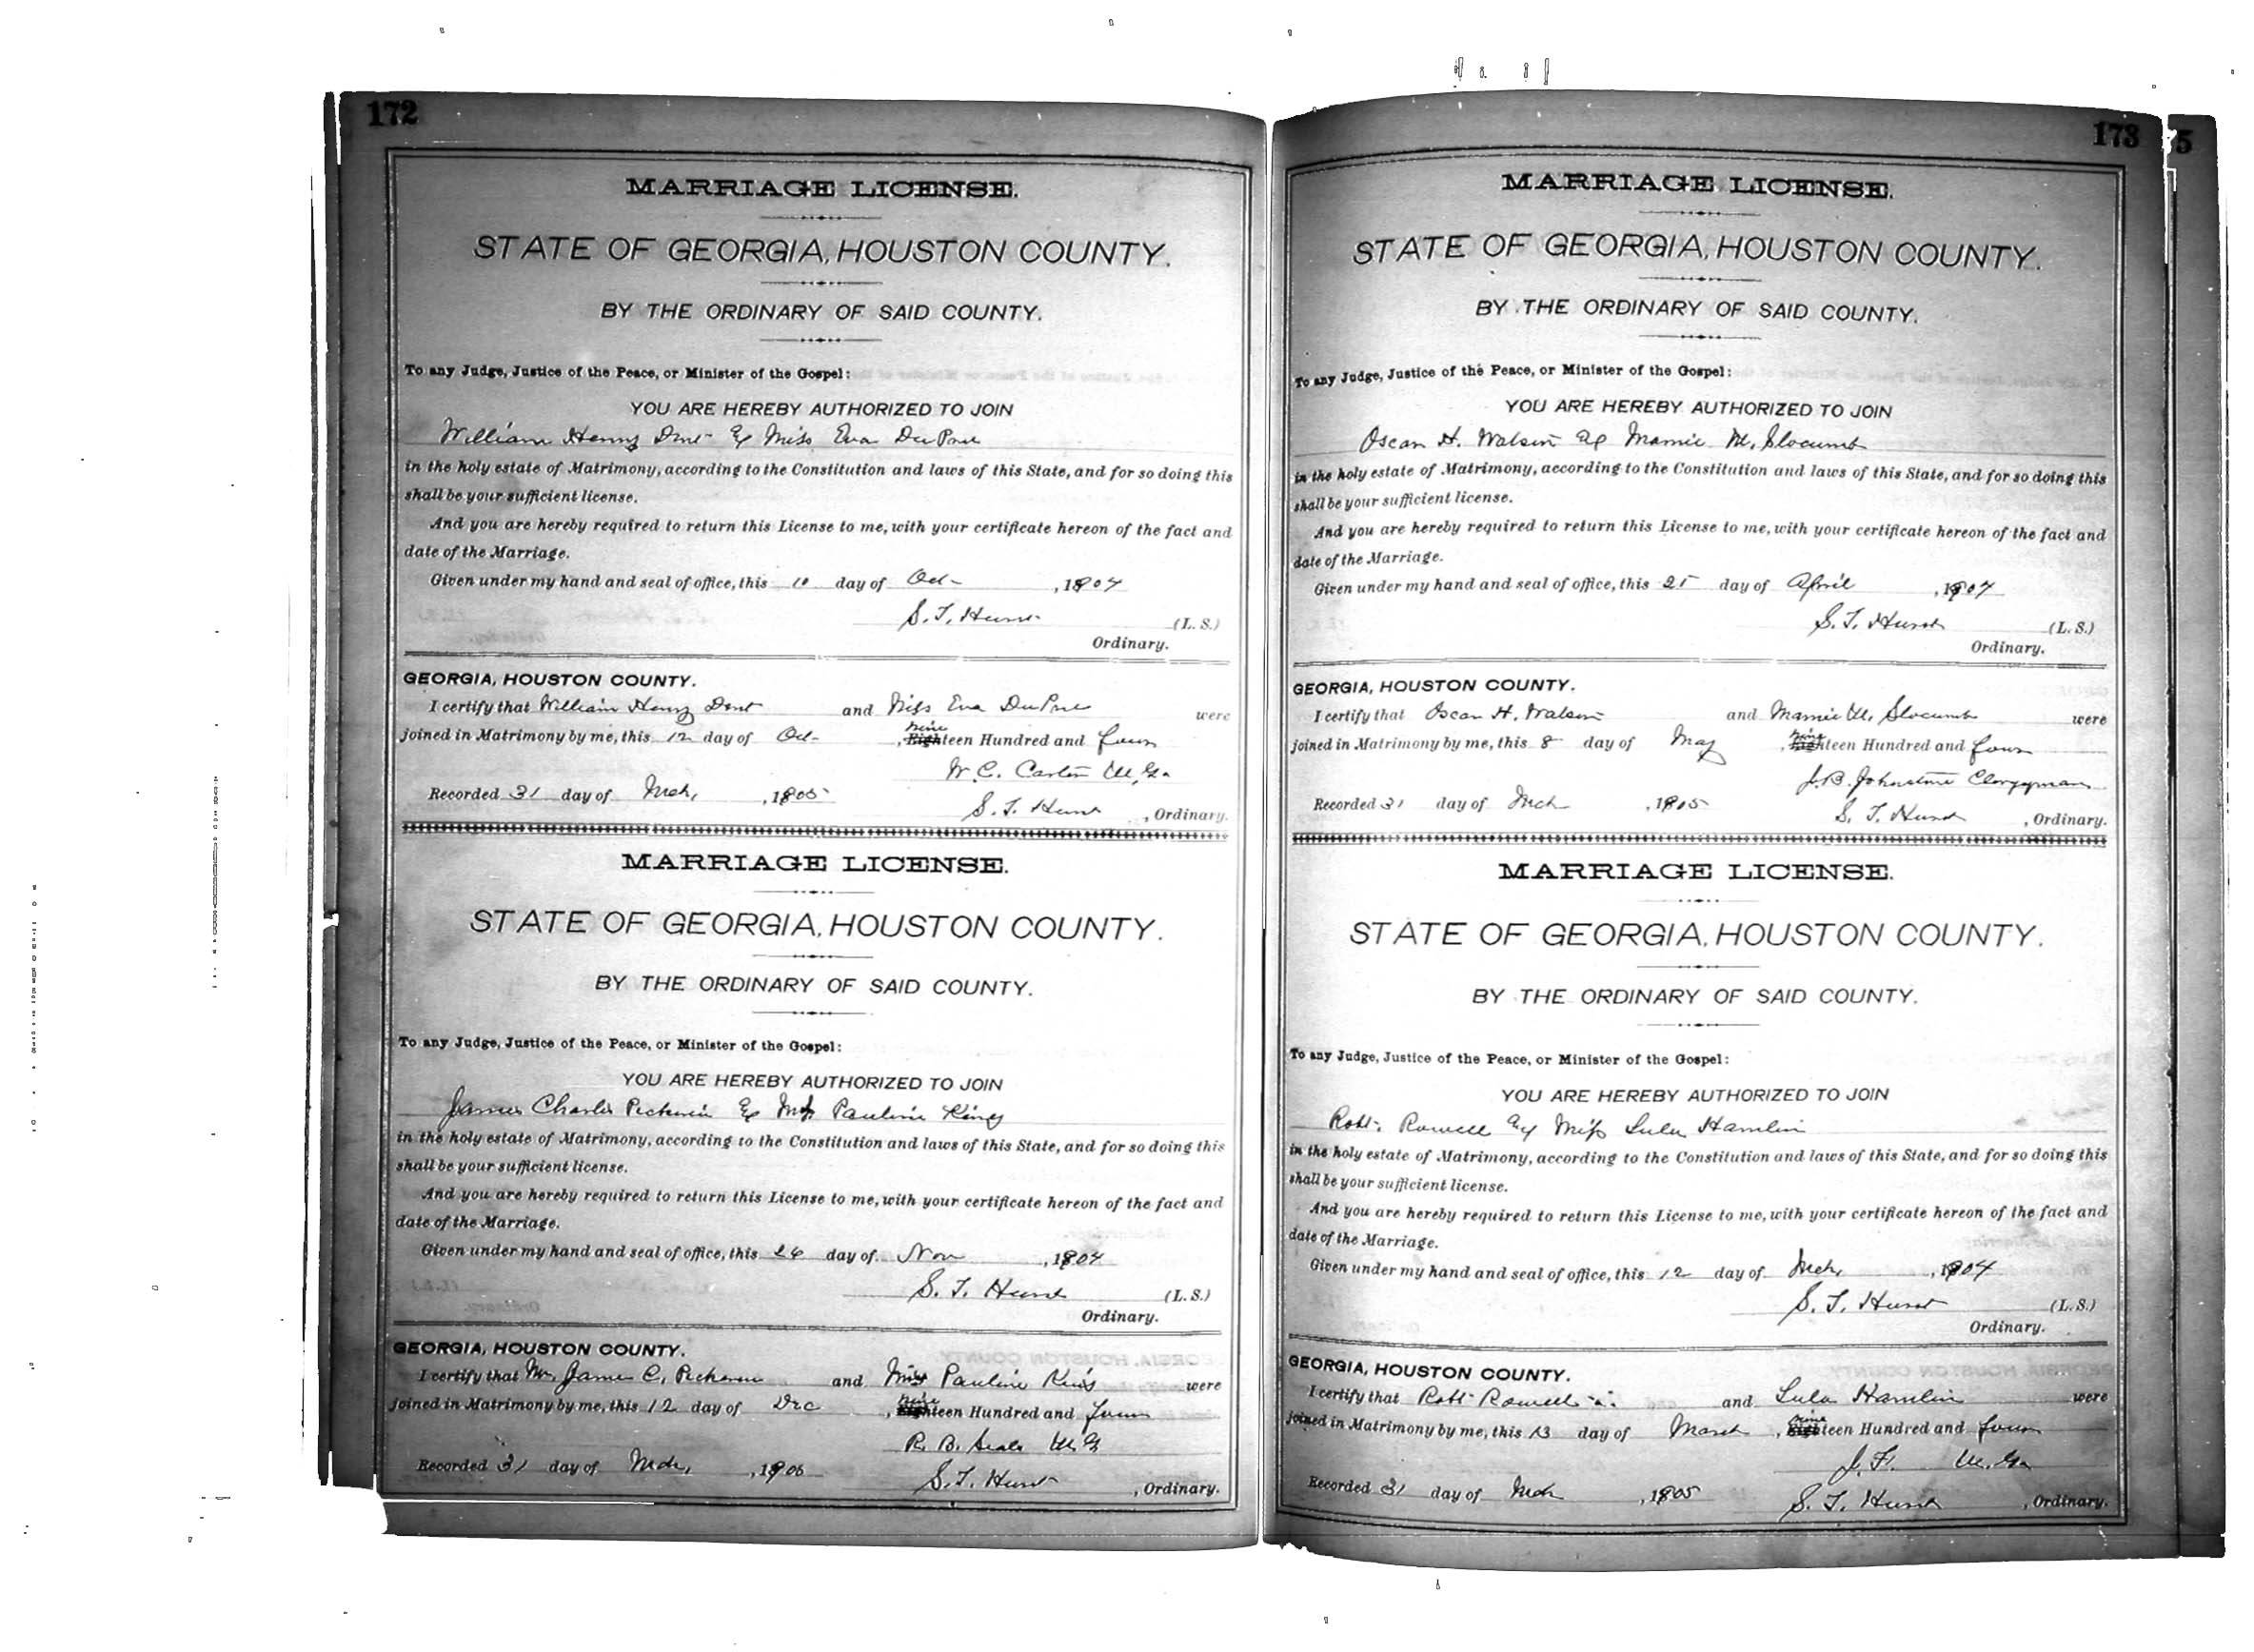 172
MARRIAGE LICENSE.
STATE OF GEORGIA, HOUSTON COUNTY.
BY THE ORDINARY OF SAID COUNTY.
To any Judge, Justice of the Peace, or Minister of the Gospel:
YOU ARE HEREBY AUTHORIZED TO JOIN
William Henry Dent & Miss Eva DuPree
in the holy estate of Matrimony, according to the Constitution and laws of this State, and for so doing this
shall be your sufficient license.
And you are hereby required to return this License to me, with your certificate hereon of the fact and
date of the Marriage.
Given under my hand and seal of office, this 10 day of Oct , 1904
S. T. Hurst (L. S.)
Ordinary.
GEORGIA, HOUSTON COUNTY.
I certify that William Henry Dent and Miss Eva DuPree were
joined in Matrimony by me, this 12 day of Oct , Nineteen Hundred and four
W. C. M. G.
Recorded 31 day of Mch, , 1905
S. T. Hurst , Ordinary.
MARRIAGE LICENSE.
STATE OF GEORGIA, HOUSTON COUNTY.
BY THE ORDINARY OF SAID COUNTY.
To any Judge, Justice of the Peace, or Minister of the Gospel:
YOU ARE HEREBY AUTHORIZED TO JOIN
James Charles & Miss Pauline King
in the holy estate of Matrimony, according to the Constitution and laws of this State, and for so doing this
shall be your sufficient license.
And you are hereby required to return this License to me, with your certificate hereon of the fact and
date of the Marriage.
Given under my hand and seal of office, this 26 day of Nov , 1904
S. T. Hurst (L. S.)
Ordinary.
GEORGIA, HOUSTON COUNTY.
I certify that Mr. James C. and Miss Pauline King were
joined in Matrimony by me, this 12 day of Dec , Nineteen Hundred and four
R. B. M. G.
Recorded 31 day of Mch, , 1905
S. T. Hurst , Ordinary.
173
5
MARRIAGE LICENSE.
STATE OF GEORGIA, HOUSTON COUNTY.
BY THE ORDINARY OF SAID COUNTY.
To any Judge, Justice of the Peace, or Minister of the Gospel:
YOU ARE HEREBY AUTHORIZED TO JOIN
Oscar H. Watson & Mamie M. Slocumb
in the holy estate of Matrimony, according to the Constitution and laws of this State, and for so doing this
shall be your sufficient license.
And you are hereby required to return this License to me, with your certificate hereon of the fact and
date of the Marriage.
Given under my hand and seal of office, this 25 day of April , 1904
S. T. Hurst (L. S.)
Ordinary.
GEORGIA, HOUSTON COUNTY.
I certify that Oscar H. Watson and Mamie M. Slocumb were
joined in Matrimony by me, this 8 day of May , Nineteen Hundred and four
J. B. Johnstone Clergyman
Recorded 31 day of Mch , 1905
S. T. Hurst , Ordinary.
MARRIAGE LICENSE.
STATE OF GEORGIA, HOUSTON COUNTY.
BY THE ORDINARY OF SAID COUNTY.
To any Judge, Justice of the Peace, or Minister of the Gospel:
YOU ARE HEREBY AUTHORIZED TO JOIN
Robt. Rowell & Miss Lula Hamlin
in the holy estate of Matrimony, according to the Constitution and laws of this State, and for so doing this
shall be your sufficient license.
And you are hereby required to return this License to me, with your certificate hereon of the fact and
date of the Marriage.
Given under my hand and seal of office, this 12 day of Mch, , 1904
S. T. Hurst (L. S.)
Ordinary.
GEORGIA, HOUSTON COUNTY.
I certify that Robt Rowell and Lula Hamlin were
joined in Matrimony by me, this 13 day of March , Nineteen Hundred and four
J. F. M. G.
Recorded 31 day of Mch , 1905
S. T. Hurst , Ordinary.